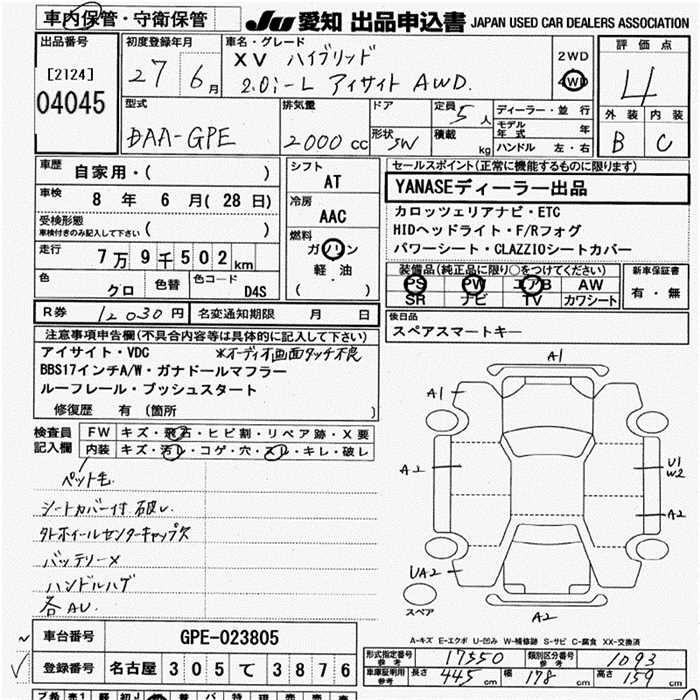 車内保管・守衛保管
JU 愛知 出品申込書 JAPAN USED CAR DEALERS ASSOCIATION
出品番号
[2124]
04045
初度登録年月
27 6月
車名・グレード
XV ハイブリッド
2.0i-L アイサイト AWD.
2WD
4WD
評価点
4
外装 内装
B C
型式
DAA-GPE
排気量
2000 CC
ドア
形状 SW
定員 5人
積載 kg
ディーラー・並行
モデル年式 年
ハンドル 左・右
車歴
自家用・( )
車検
8年 6月(28日)
受検形態
車検付きのみ記入して下さい ( )
走行
7万9千502km
色 グロ 色替 色コード D4S
シフト
AT
冷房
AAC
燃料
ガソリン
軽・油
( )
セールスポイント(正常に機能するものに限ります)
YANASEディーラー出品
カロッツェリアナビ・ETC
HIDヘッドライト・F/Rフォグ
パワーシート・CLAZZIOシートカバー
装備品(純正品に限り○をつけてください)
PS PW エアB AW
SR ナビ TV カワシート
新車保証書
有・無
R券 12030円 名変通知期限 月 日
後日品
スペアスマートキー
注意事項申告欄(不具合内容等は具体的に記入して下さい)
アイサイト・VDC ※オーディオ画面タッチ不良
BBS17インチA/W・ガナドールマフラー
ルーフレール・プッシュスタート
修復歴 有 (箇所 )
検査員記入欄
FW キズ・飛石・ヒビ割・リペア跡・X要
内装 キズ・汚レ・コゲ・穴・スレ・キレ・破レ
ペット毛
シートカバー付 破レ
タトホイールセンターキャップス
バッテリーメ
ハンドルハゲ
各AU.
A1
A1
A2
U1
W2
A2
UA2
スペア
A2
A-キズ E-エクボ U-凹み W-補修跡 S-サビ C-腐食 XX-交換済
車台番号 GPE-023805
登録番号 名古屋 305 て 3876
形式指定番号 参考 17550 類別区分番号 参考 1093
車庫証明用 参考 長さ 445cm 幅 178cm 高さ 159cm